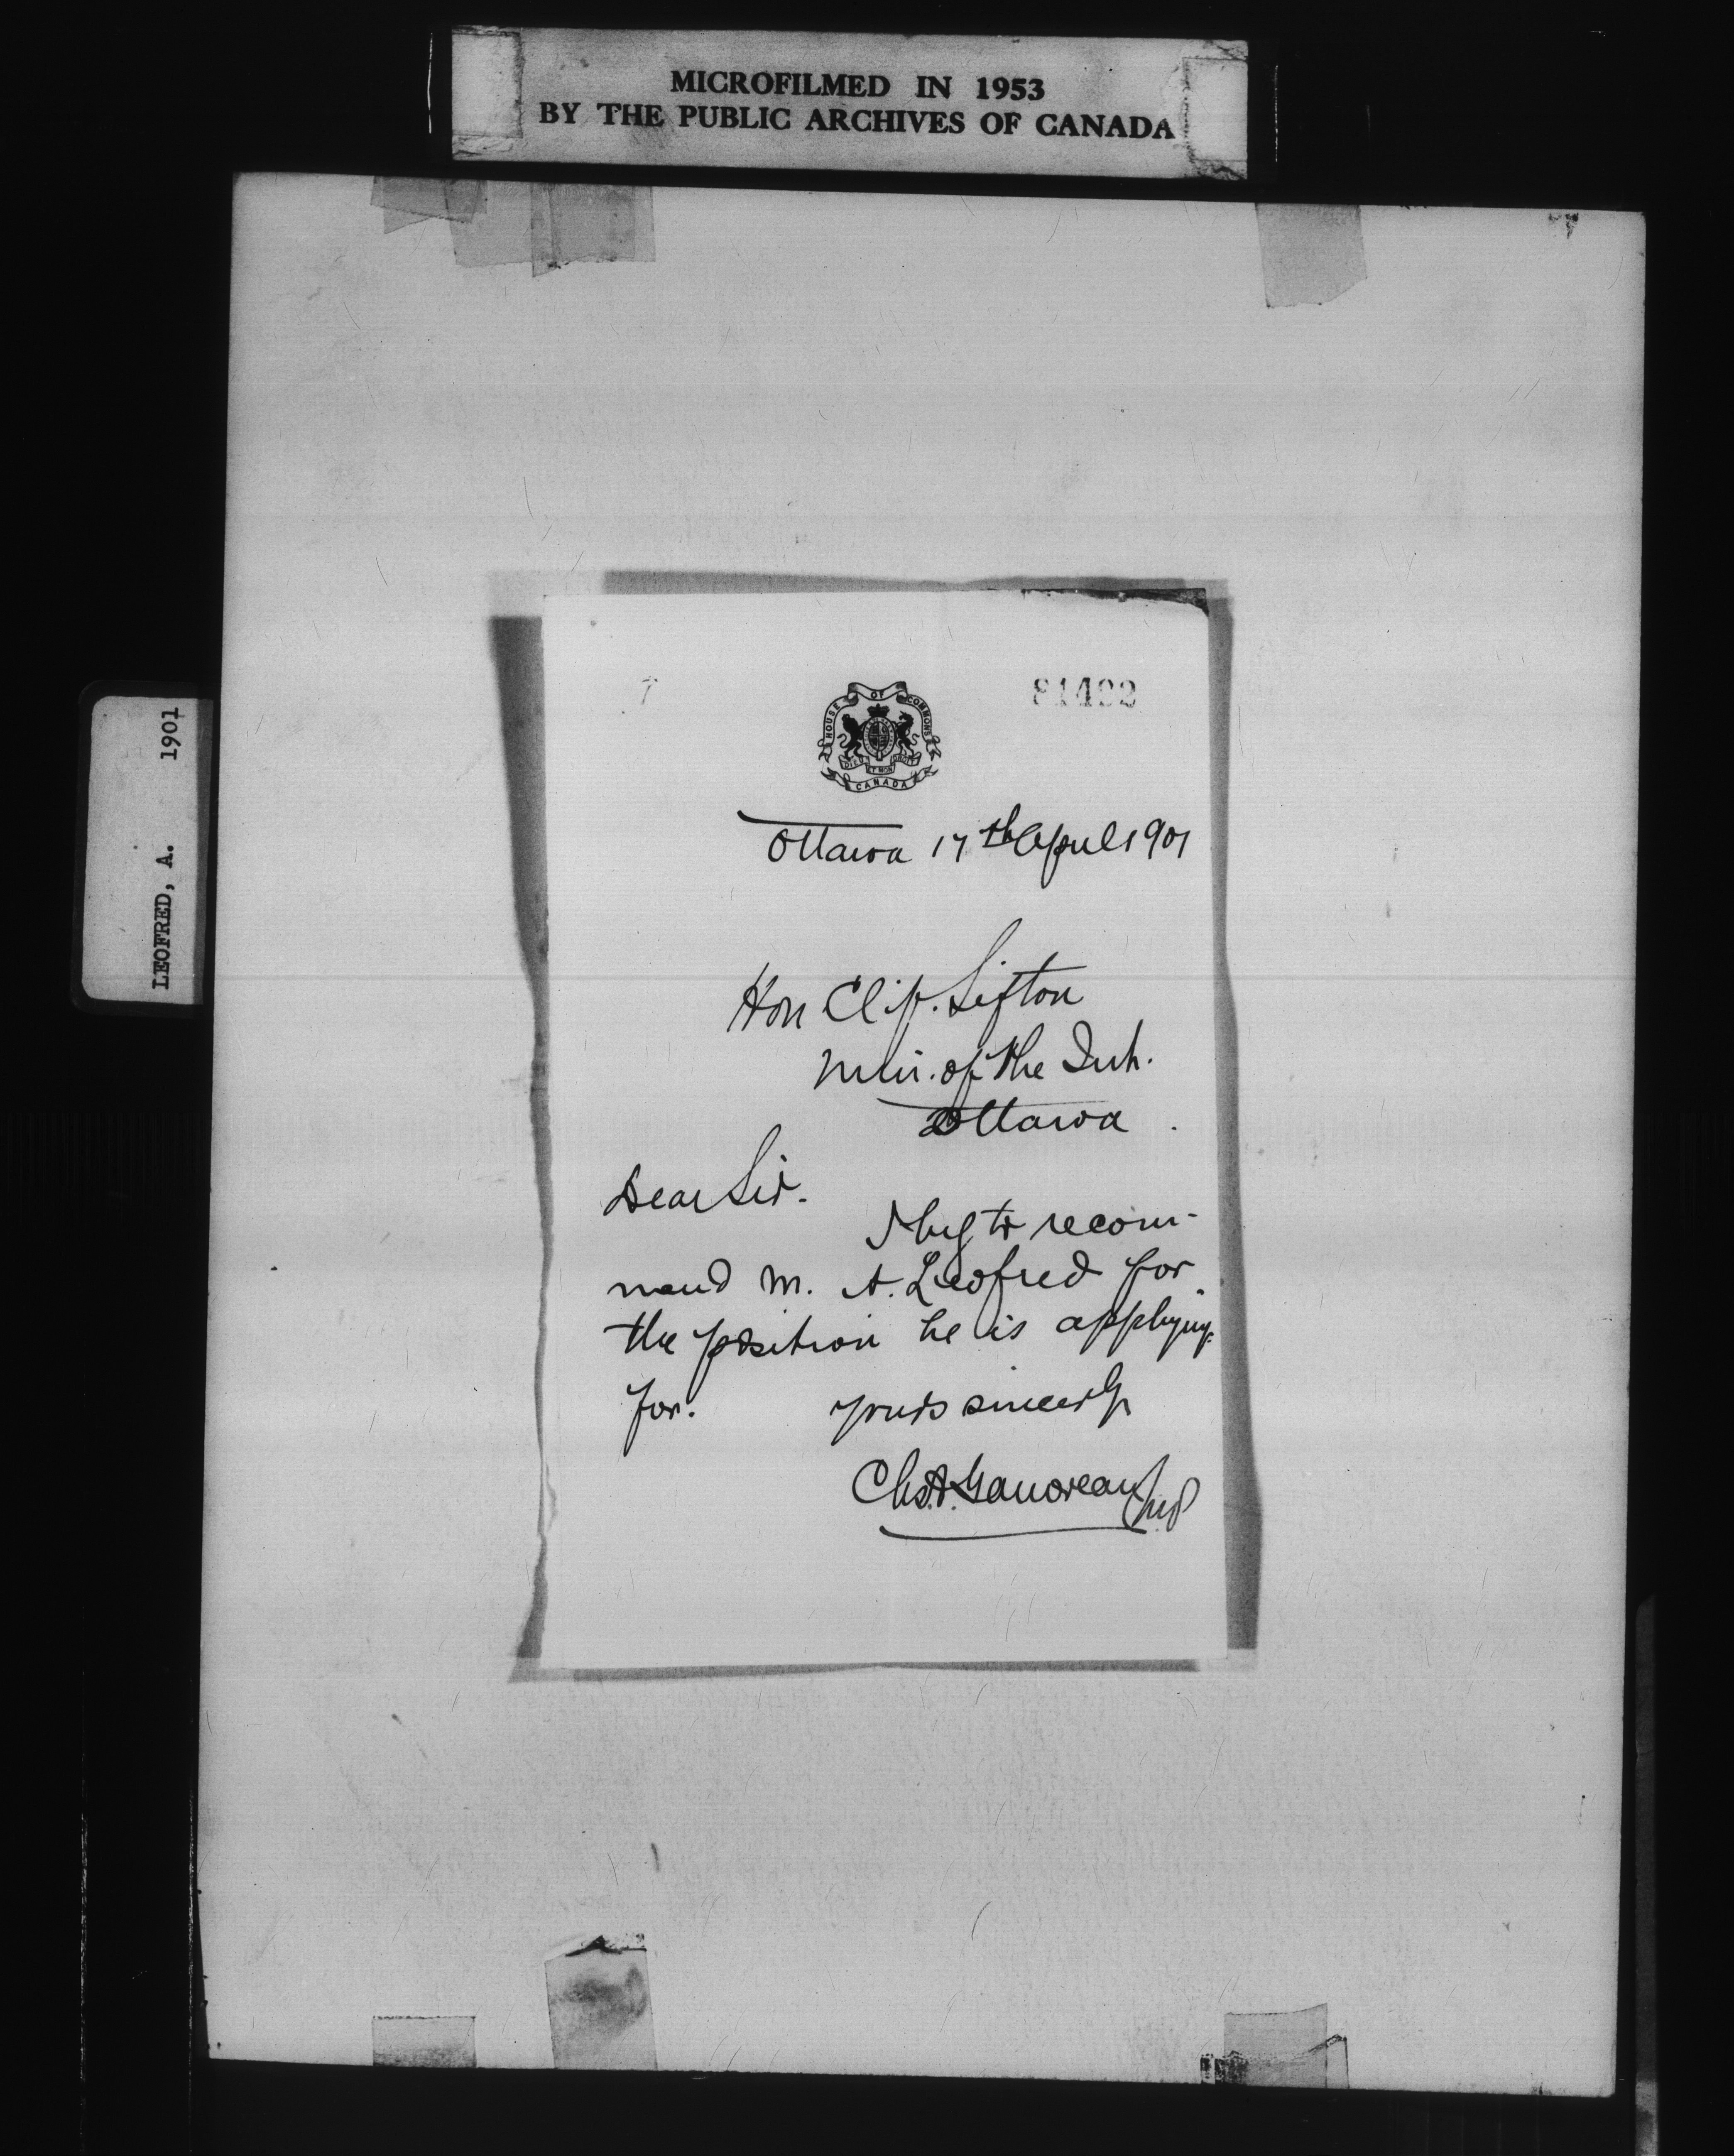 MICROFILMED IN 1953
BY THE PUBLIC ARCHIVES OF CANADA
LEOFRED, A. 1901
81492
HOUSE OF COMMONS
DIEU ET MON DROIT
CANADA
Ottawa 17th April 1901
Hon Clif. Sifton
Min. of the Int.
Ottawa.
Dear Sir.
I beg to recom-
mend M. A. Leofred for
the position he is applying
for. yours sincerely
Chs. A. Gauvreau MP